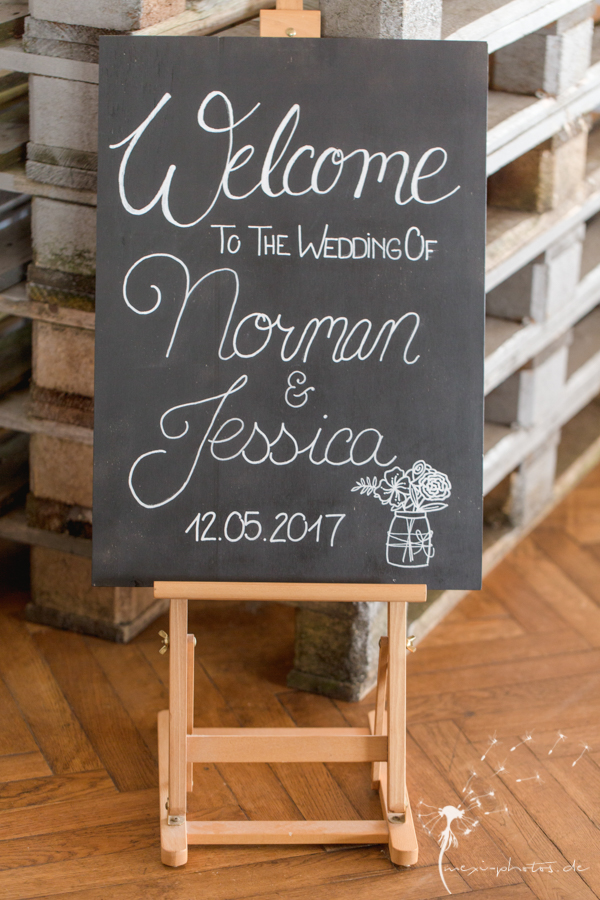 Welcome
To The Wedding Of
Norman
&
Jessica
12.05.2017